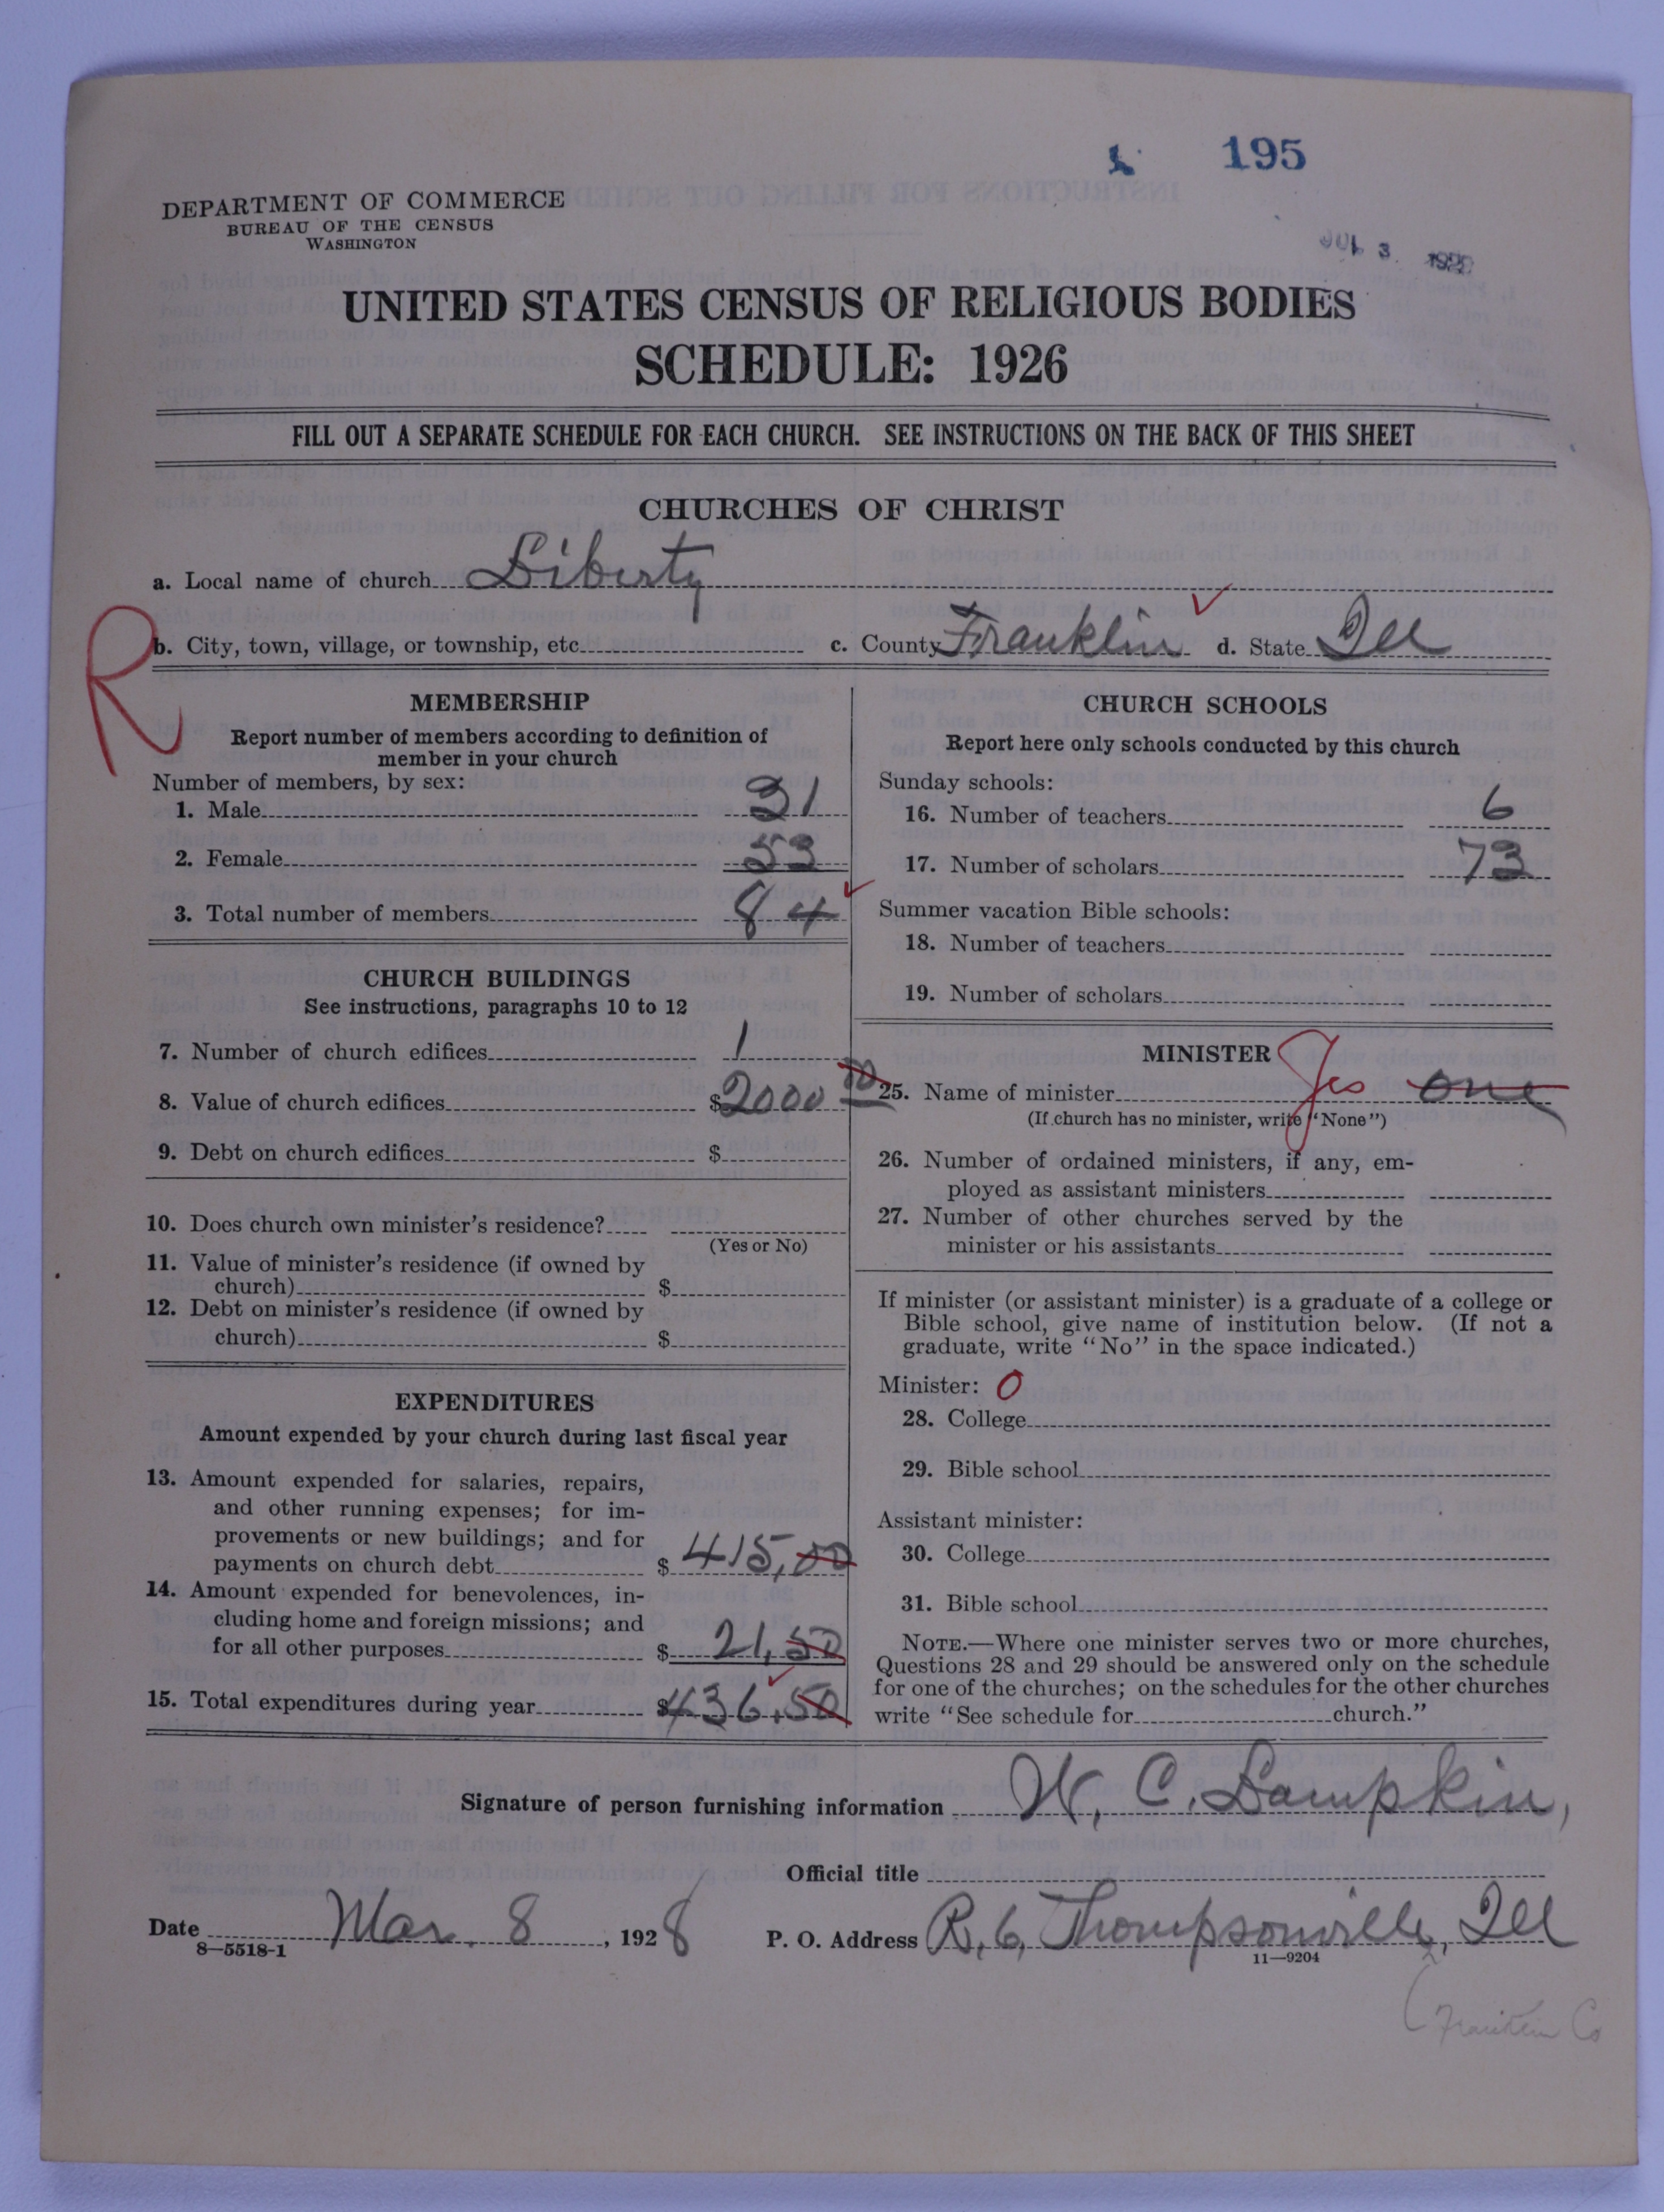 195
DEPARTMENT OF COMMERCE
BUREAU OF THE CENSUS
WASHINGTON
UNITED STATES CENSUS OF RELIGIOUS BODIES
SCHEDULE: 1926
FILL OUT A SEPARATE SCHEDULE FOR EACH CHURCH. SEE INSTRUCTIONS ON THE BACK OF THIS SHEET
CHURCHES OF CHRIST
a. Local name of church Liberty
R
b. City, town, village, or township, etc. c. County Franklin d. State Ill
MEMBERSHIP
Report number of members according to definition of
member in your church
Number of members, by sex:
1. Male 31
2. Female 53
3. Total number of members 84
CHURCH BUILDINGS
See instructions, paragraphs 10 to 12
7. Number of church edifices 1
8. Value of church edifices $2000 00
9. Debt on church edifices $
10. Does church own minister's residence?
(Yes or No)
11. Value of minister's residence (if owned by
church) $
12. Debt on minister's residence (if owned by
church) $
EXPENDITURES
Amount expended by your church during last fiscal year
13. Amount expended for salaries, repairs,
and other running expenses; for im-
provements or new buildings; and for
payments on church debt $ 415,00
14. Amount expended for benevolences, in-
cluding home and foreign missions; and
for all other purposes $ 21,50
15. Total expenditures during year $436,50
CHURCH SCHOOLS
Report here only schools conducted by this church
Sunday schools:
16. Number of teachers 6
17. Number of scholars 73
Summer vacation Bible schools:
18. Number of teachers
19. Number of scholars
MINISTER
25. Name of minister Yes one
(If church has no minister, write "None")
26. Number of ordained ministers, if any, em-
ployed as assistant ministers
27. Number of other churches served by the
minister or his assistants
If minister (or assistant minister) is a graduate of a college or
Bible school, give name of institution below. (If not a
graduate, write "No" in the space indicated.)
Minister: 0
28. College
29. Bible school
Assistant minister:
30. College
31. Bible school
NOTE.—Where one minister serves two or more churches,
Questions 28 and 29 should be answered only on the schedule
for one of the churches; on the schedules for the other churches
write "See schedule for church."
Signature of person furnishing information W. C. Lampkin,
Official title
Date Mar. 8, 1928 P. O. Address R. 6, Thompsonville, Ill
8—5518-1 11—9204
(Franklin Co